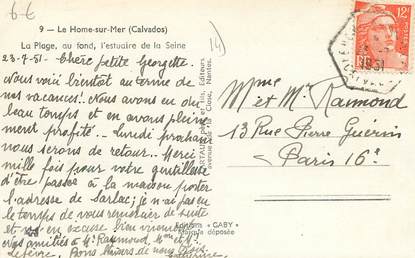 6€
9 - Le Home-sur-Mer (Calvados)
La Plage, au fond, l'estuaire de la Seine
23-7-51 - Chère petite Georgette
Nous voici bientôt au terme de
nos vacances! Nous avons eu du
beau temps et en avons pleine-
ment profité.. Lundi prochain
nous serons de retour.. Merci
mille fois pour votre gentillesse
d'être passée à la maison porter
l'adresse de Sarlac; je n'ai pas eu
le temps de vous remercier de suite
et m'en excuse bien vivement
amitiés à Mr Raymond, Mme et Mr
Lefèvre. Bons baisers de nous
père et fils, Editeurs
Nantes.
Editions "GABY"
Marque déposée
12F
1951
Mme et Mr Raymond
13 Rue Pierre Guérin
Paris 16e